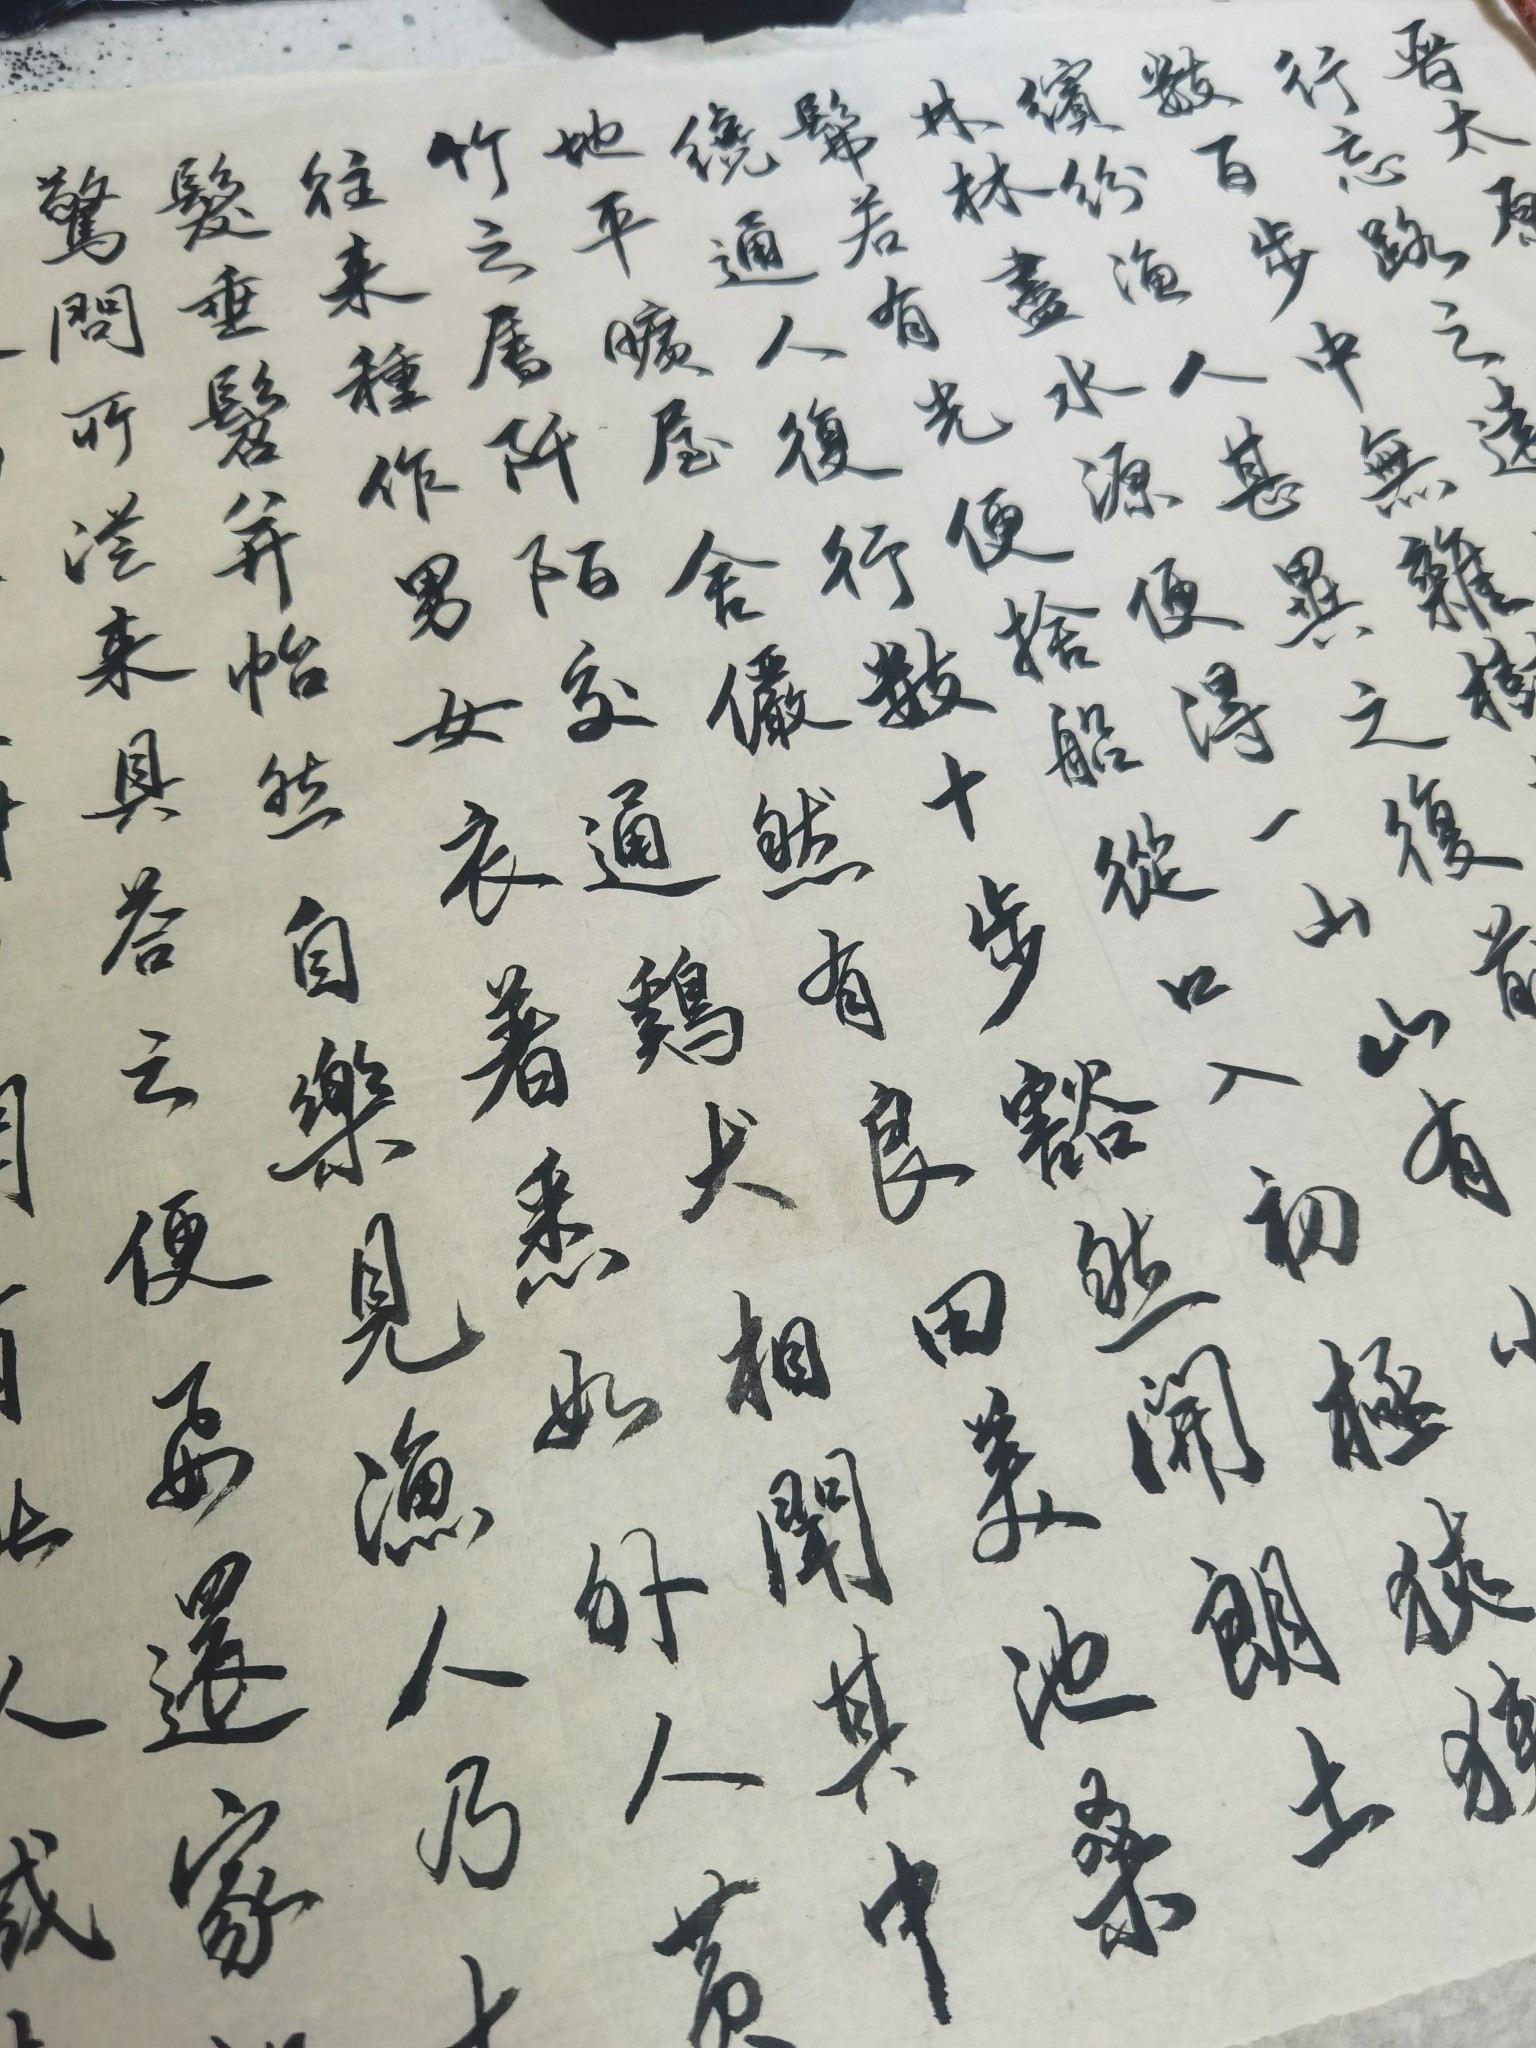 晉太原
行忘路之遠
數百步中無雜樹
繽紛漁人甚異之復前
林林盡水源便得一山山有小
髴若有光便捨船從口入初極狹
纔通人復行數十步豁然開朗土
地平曠屋舍儼然有良田美池桑
竹之屬阡陌交通鷄犬相聞其中
往來種作男女衣著悉如外人黃
髮垂髫并怡然自樂見漁人乃大
驚問所從來具答云便要還家
人咸